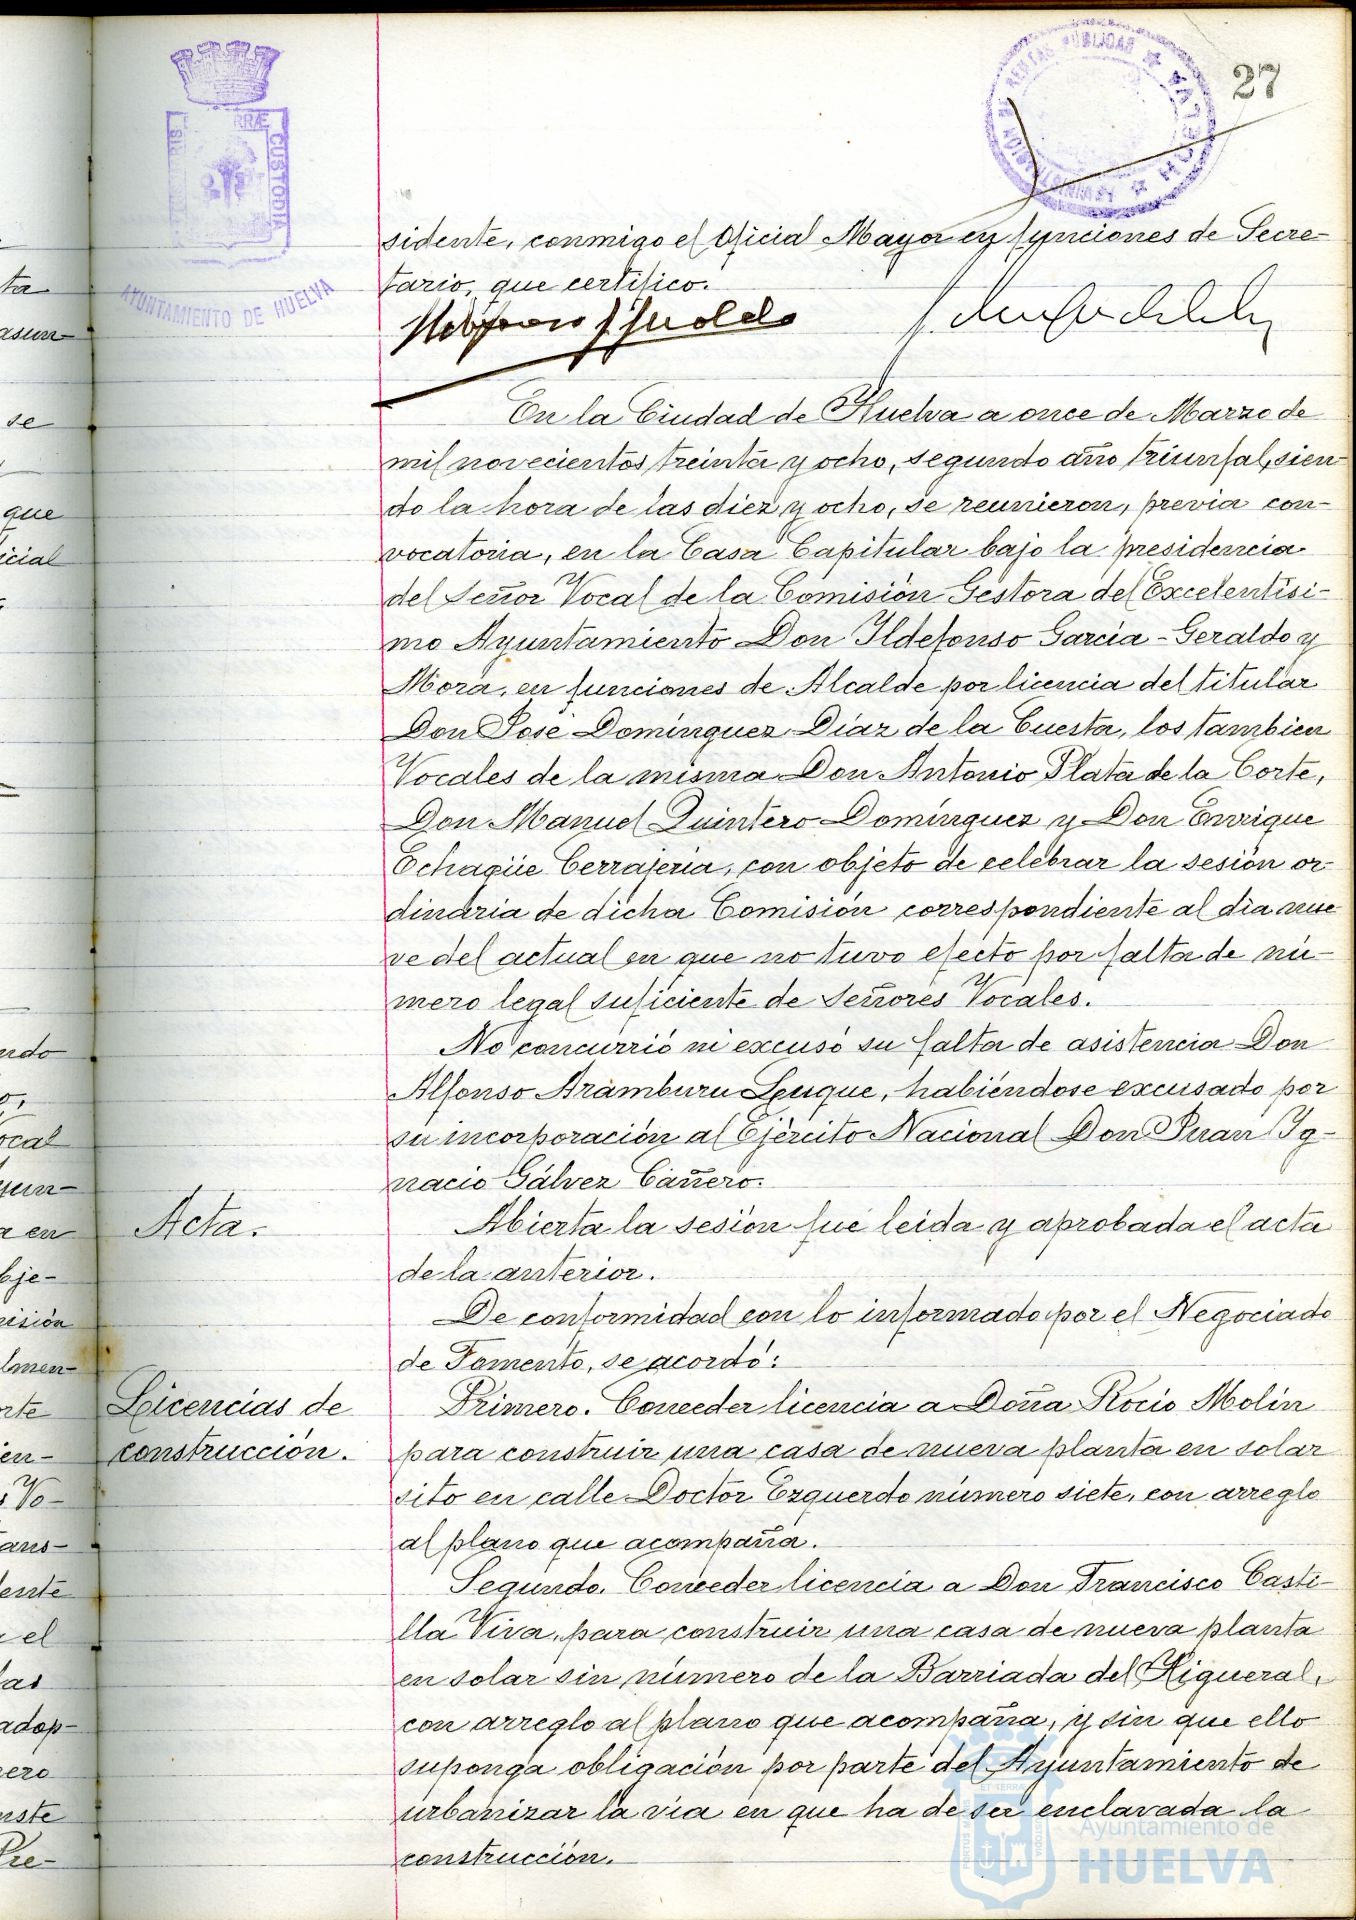 27
ADMINISTRACIÓN DE RENTAS PUBLICAS
HUELVA
PORTUS MARIS ET TERRÆ CUSTODIA
AYUNTAMIENTO DE HUELVA
sidente, conmigo el Oficial Mayor en funciones de Secre-
tario, que certifico.
En la Ciudad de Huelva a once de Marzo de
mil novecientos treinta y ocho, segundo año triunfal, sien-
do la hora de las diez y ocho, se reunieron, previa con-
vocatoria, en la Casa Capitular bajo la presidencia
del Señor Vocal de la Comisión Gestora del Excelentísi-
mo Ayuntamiento Don Ildefonso García-Geraldo y
Mora, en funciones de Alcalde por licencia del titular
Don José Domínguez Díaz de la Cuesta, los tambien
Vocales de la misma Don Antonio Plata de la Corte,
Don Manuel Quintero Domínguez y Don Enrique
Echagüe Cerrajería, con objeto de celebrar la sesión or-
dinaria de dicha Comisión correspondiente al día nue
ve del actual en que no tuvo efecto por falta de nú-
mero legal suficiente de Señores Vocales.
No concurrió ni excusó su falta de asistencia Don
Alfonso Aramburu Luque, habiéndose excusado por
su incorporación al Ejército Nacional Don Juan Ig-
nacio Gálvez Cañero.
Acta.
Abierta la sesión fué leida y aprobada el acta
de la anterior.
De conformidad con lo informado por el Negociado
de Fomento, se acordó:
Licencias de
construcción.
Primero. Conceder licencia a Doña Rocío Molín
para construir una casa de nueva planta en solar
sito en calle Doctor Ezquerdo número siete, con arreglo
al plano que acompaña.
Segundo. Conceder licencia a Don Francisco Casti-
lla Viva, para construir una casa de nueva planta
en solar sin número de la Barriada del Higueral,
con arreglo al plano que acompaña, y sin que ello
suponga obligación por parte del Ayuntamiento de
urbanizar la vía en que ha de ser enclavada la
construcción.
Ayuntamiento de
HUELVA